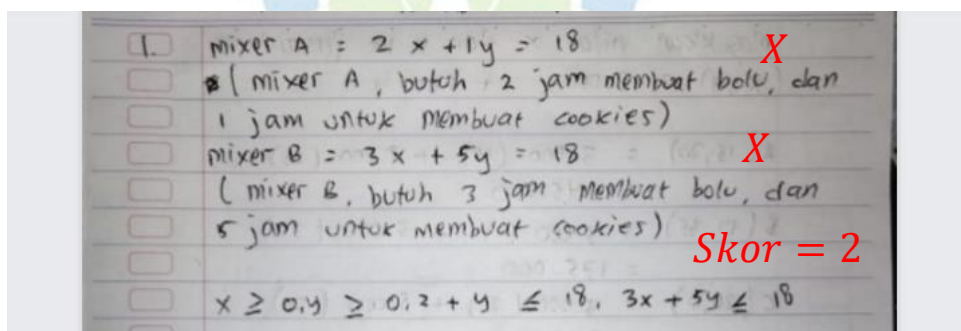 1. mixer A = 2x + 1y = 18 X
( mixer A, butuh 2 jam membuat bolu, dan
1 jam untuk membuat cookies)
mixer B = 3x + 5y = 18 X
( mixer B, butuh 3 jam membuat bolu, dan
5 jam untuk membuat cookies)
Skor = 2
x ≥ 0, y ≥ 0, 2 + y ≤ 18, 3x + 5y ≤ 18